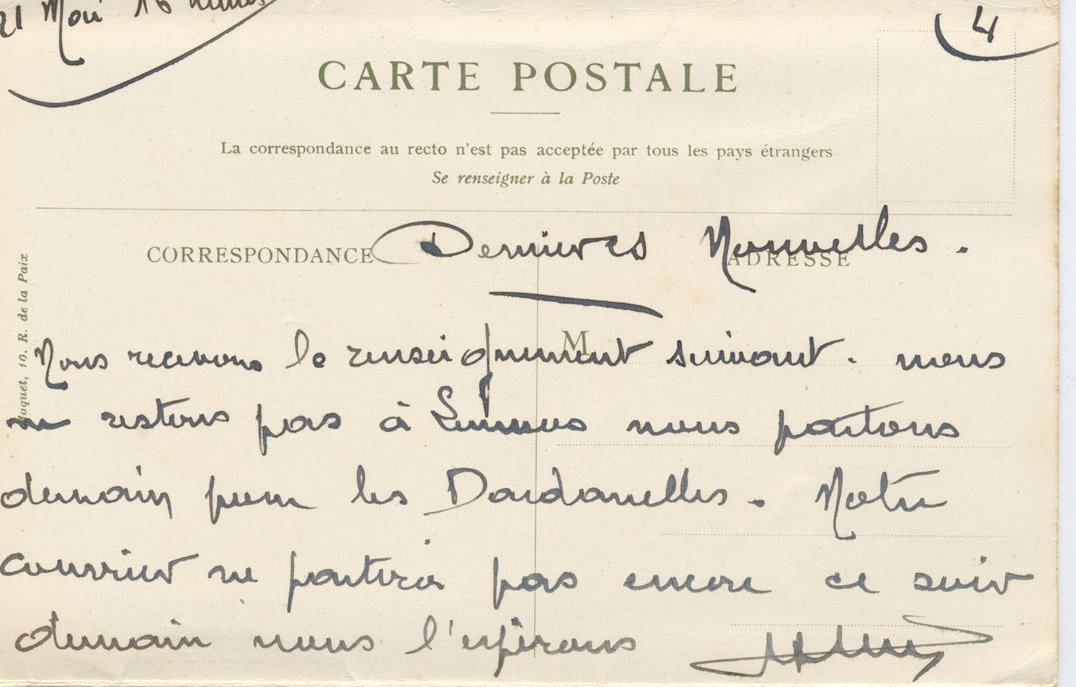 21 Mai 16 heures
4
CARTE POSTALE
La correspondance au recto n'est pas acceptée par tous les pays étrangers
Se renseigner à la Poste
CORRESPONDANCE
ADRESSE
Dernieres Nouvelles.
M
10. R. de la Paix
Nous recevons le renseignement suivant. nous
ne restons pas à Lemnos nous partons
demain pour les Dardanelles. Notre
courrier ne partira pas encore ce soir
demain nous l'espérons